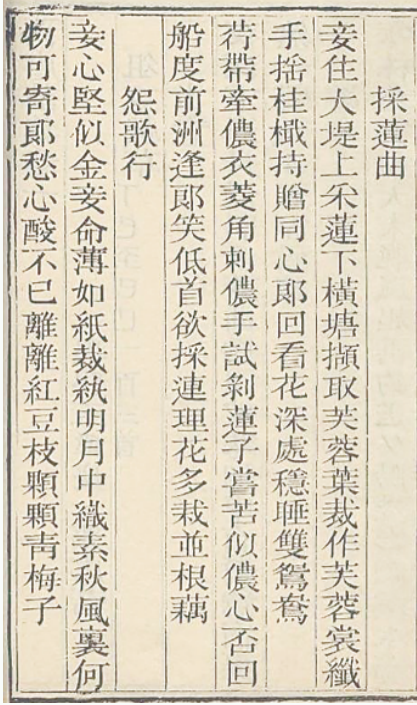 採蓮曲
妾住大堤上采蓮下橫塘擷取芙蓉葉裁作芙蓉裳纖
手搖桂檝持贈同心郎回看花深處穩睡雙鴛鴦
荇帶牽儂衣菱角刺儂手試剝蓮子嘗苦似儂心否回
船度前洲逢郎笑低首欲採連理花多栽並根藕
怨歌行
妾心堅似金妾命薄如紙裁紈明月中織素秋風裏何
物可寄郎愁心酸不已離離紅豆枝顆顆青梅子